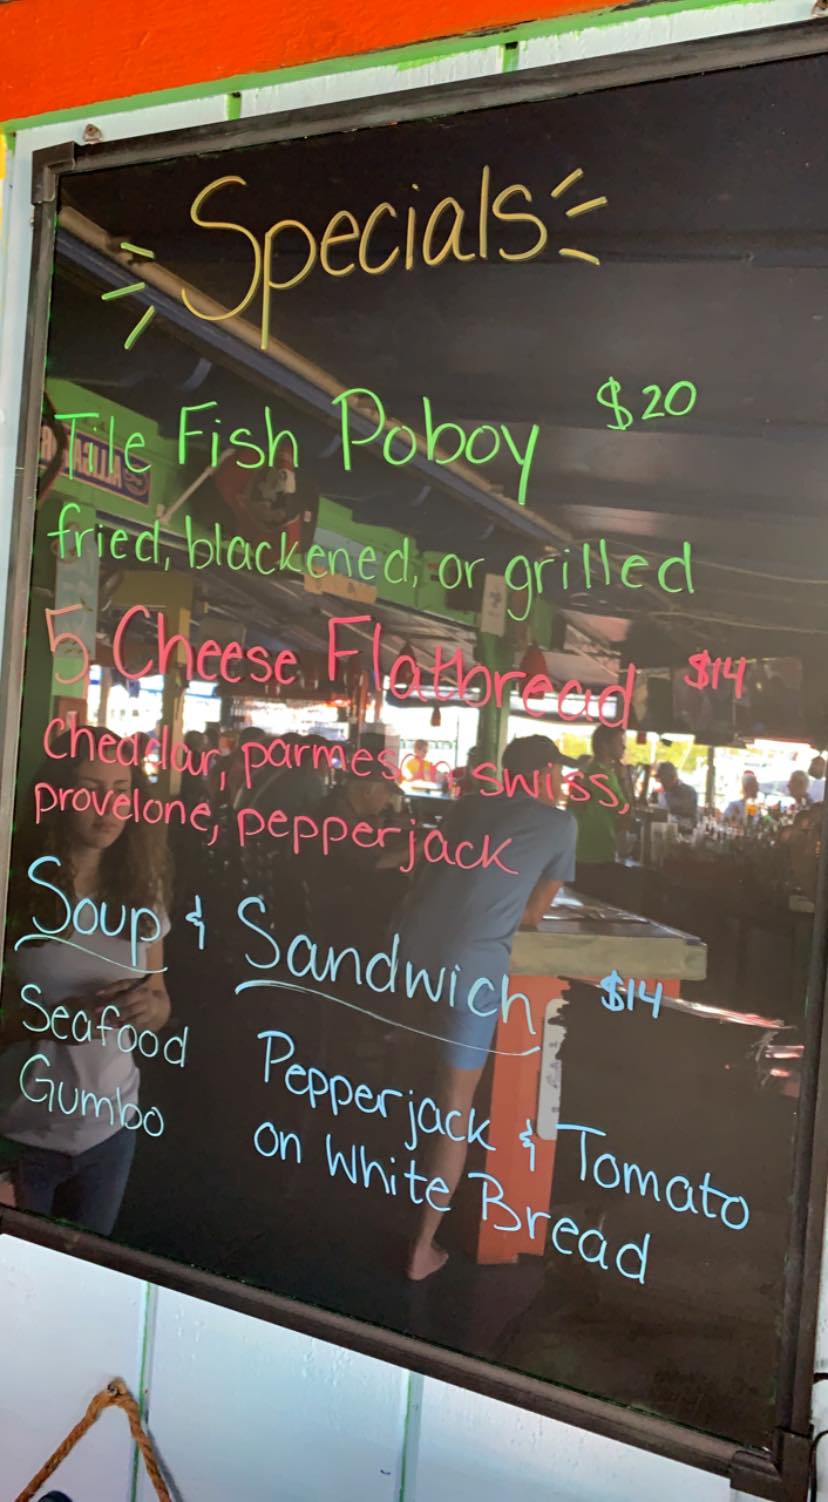 Specials
Tile Fish Poboy $20
fried, blackened, or grilled
5 Cheese Flatbread $14
Cheddar, parmesan, swiss,
provelone, pepperjack
Soup & Sandwich $14
Seafood
Gumbo
Pepperjack & Tomato
on White Bread